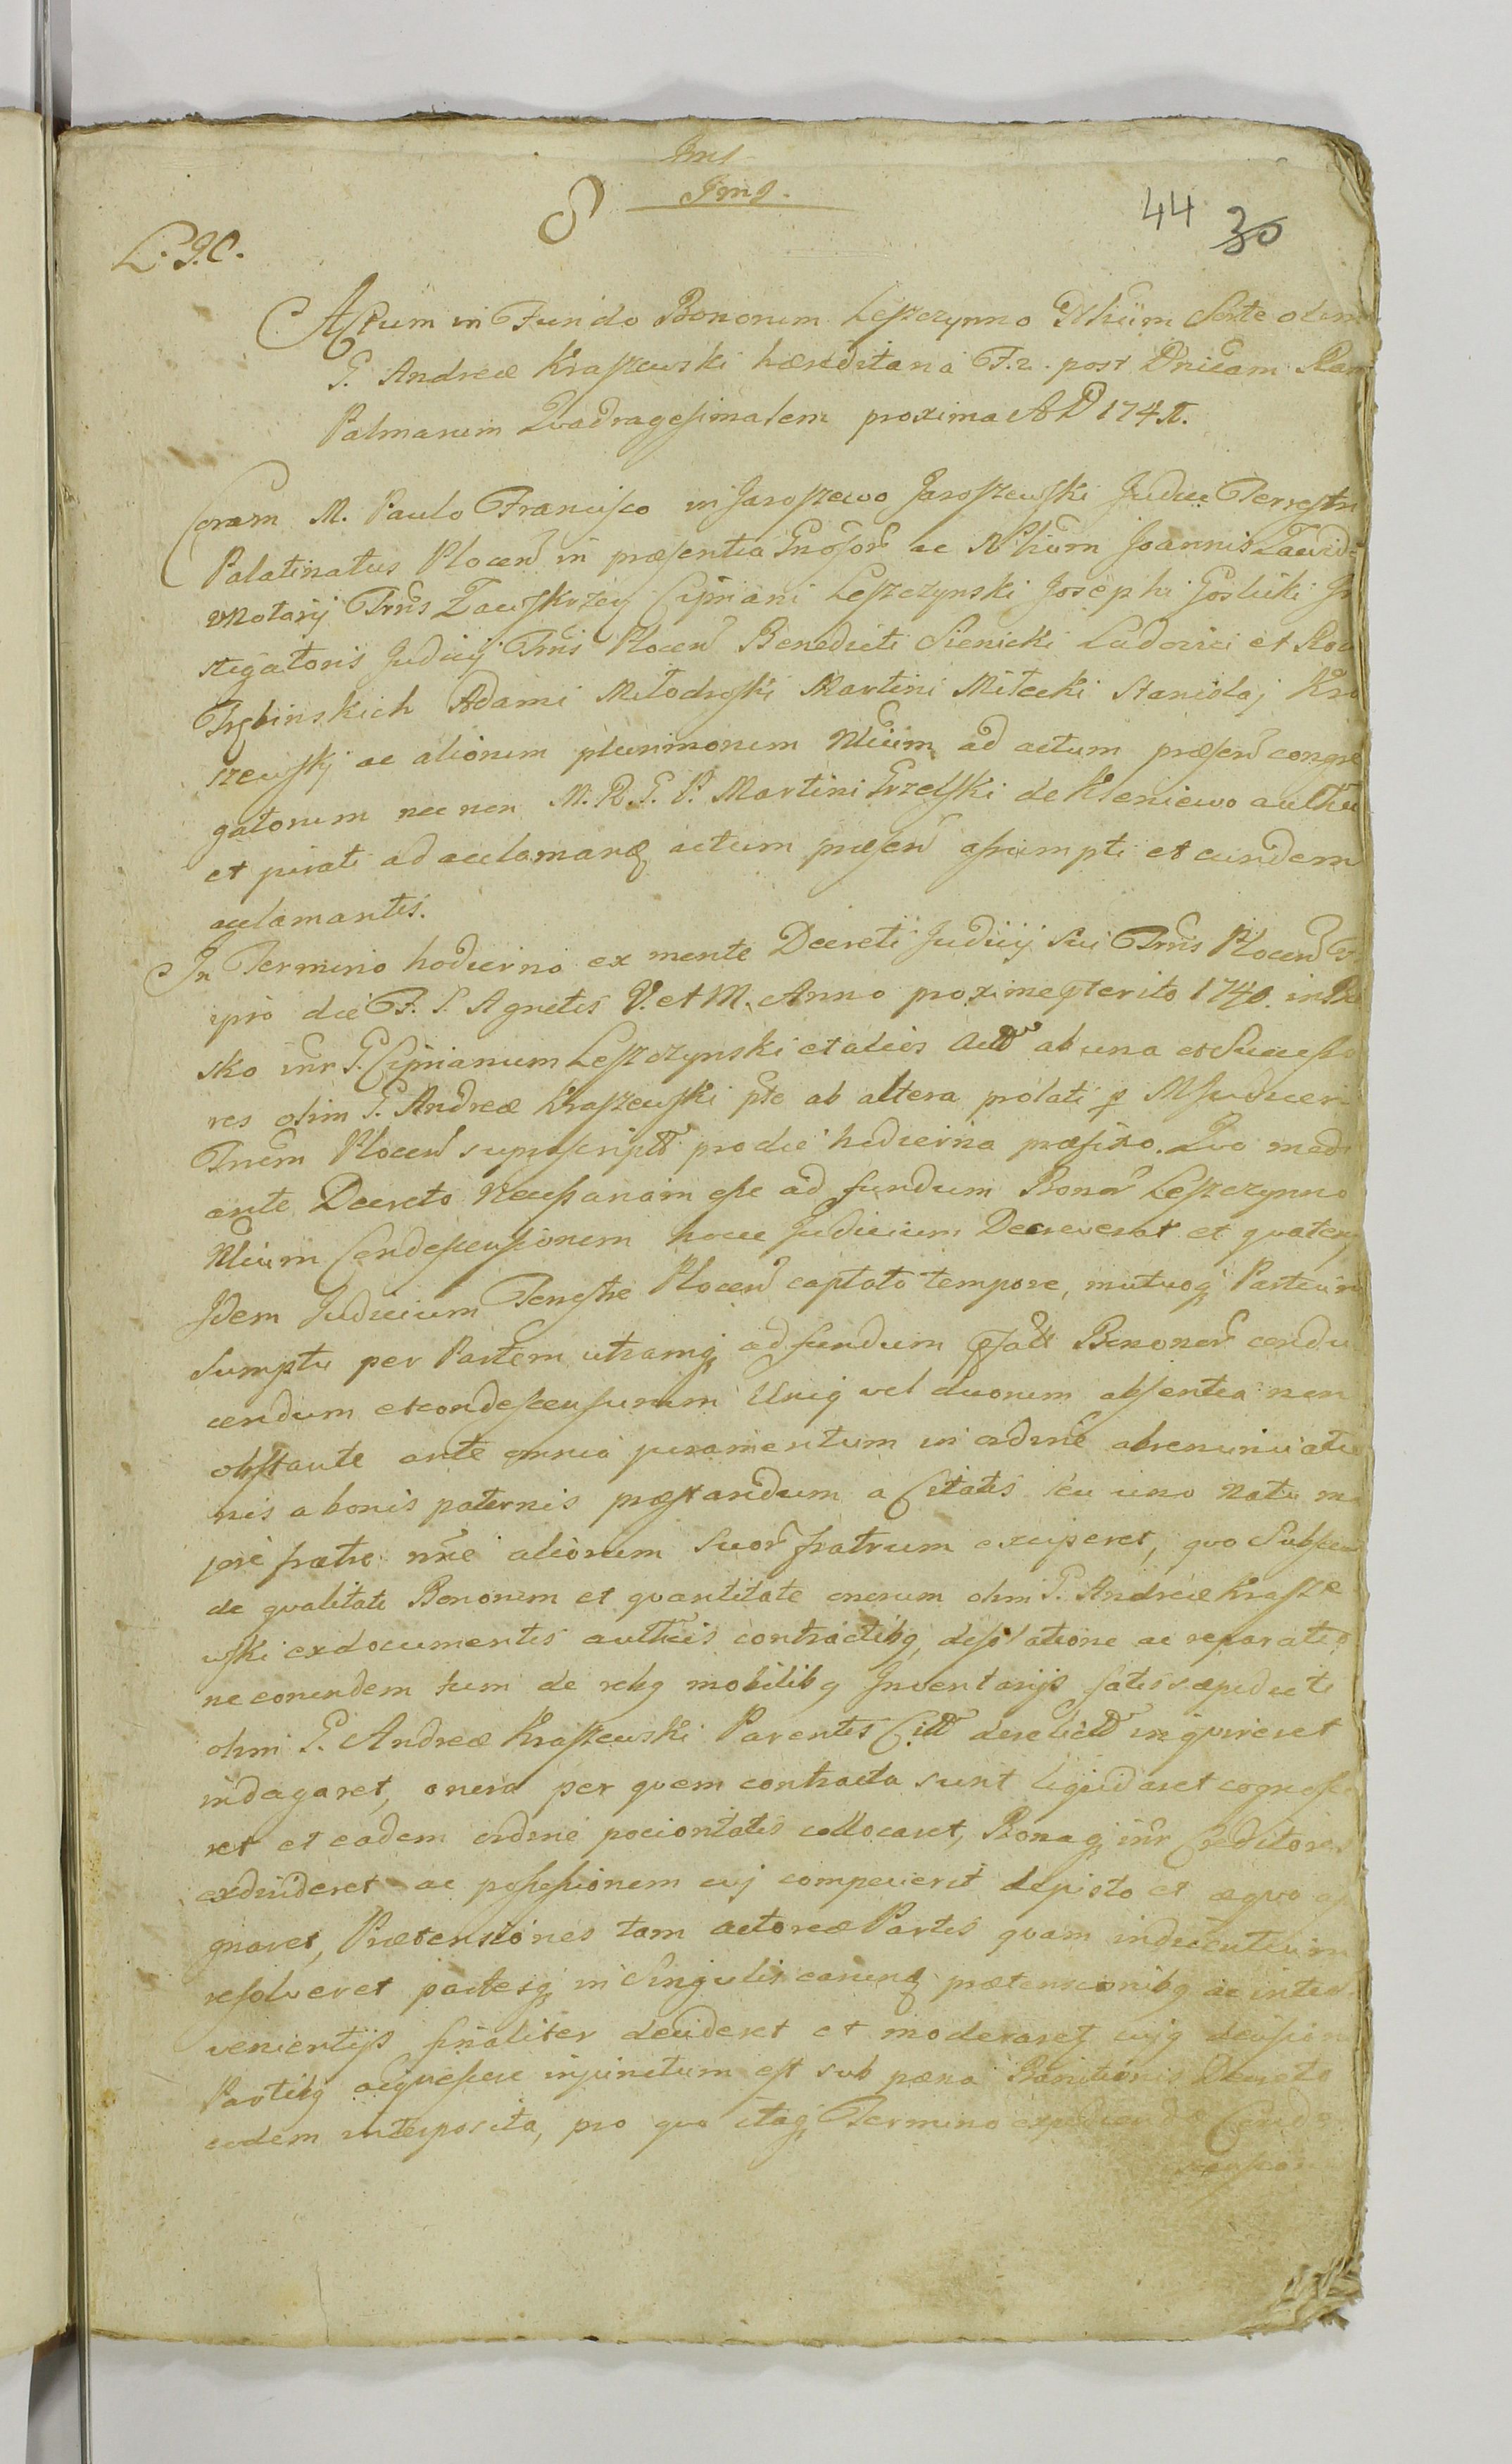 8
44 30
L. J. C.
Actum in Fundo Bonorum Leszczynno Nlium Sorte olim
G. Andreæ Kraszewski hæreditaria F. 2. post Dnicam Ram
Palmarum Quadragesimalem proxima A D 174
Coram M. Paulo Francisco in Jaroszewo Jaroszewski Judice Terrestri
Palatinatus Plocen in præsentia Gnosor ac Nlium Joannis Zawidz
Notarij Trris Zawskrzen Cipriani Leszczynski Josephi Goslicki In
stigatoris Judicij Trris Plocen Benedicti Sienicki Ludovici et
Trębinskich Adami Miłodroski Martini Miłecki Stanislaj Kra
szewskj ac aliorum plurimorum Nlium ad actum præsen congre
gatorum nec non M. R. G. P. Martini Grzelski de Kleniewo authen
et jurati ad acclamand actum præsen assumpti et eundem
acclamantis.
In Termino hodierno ex mente Decreti Judicij sui Trris Plocen
ipso die F. S. Agnetis V. et M. Anno proxime pterito 1740. in
sko intr G. Ciprianum Leszczynski et alios Act ab una et Successo
res olim G. Andreæ Kraszewski pte ab altera prolati p M Judicem
Trrem Plocen suprascript pro die hodierna præfixo. Quo medi
ante Decreto Necessariam esse ad fundum Bonor Leszczynno
Nlium Condescensionem hocce Judicium Decreverat et quateng
Idem Judicium Terrestre Plocen captato tempore, mutuoq Partium
Sumptu per Partem utramq ad fundum Bonoror condu
cendum et condescensurum Uniq vel duorum absentia non
obstante ante omnia juramentum in ordine abrenunciatio
nis a bonis paternis præstandum a Citatis seu uno Natu ma
jore fratre nne aliorum Suor fratrum exciperet, quo Subsecu
de qualitate Bonorum et quantitate onerum olim G. Andreæ Krasze
wski ex documentis autheis contractibq, desolatione ac reparatio
ne eorundem tum de rebq mobilibq Inventarijs satis sæpedicti
olim G. Andreæ Kraszewski Parentis Citt derelict inquireret
indagaret, onera per quem contracta sunt liquidaret cognosce
ret et eadem ordine pocioritatis collocaret, Bonaq intr Creditores
exdivideret ac possessionem cuj competierit de justo et æquo as
gnaret, Prætensiones tam actoreæ Partis quam inducentium
resolveret partesq in Singulis earund prætensionibq ac inter
venientijs finaliter decideret et moderaret cujq decisioni
Partibq acquiescere injunctum est sub pæna Banitionis Decreto
eodem interposita, pro quo itaq Termino expediend Conde